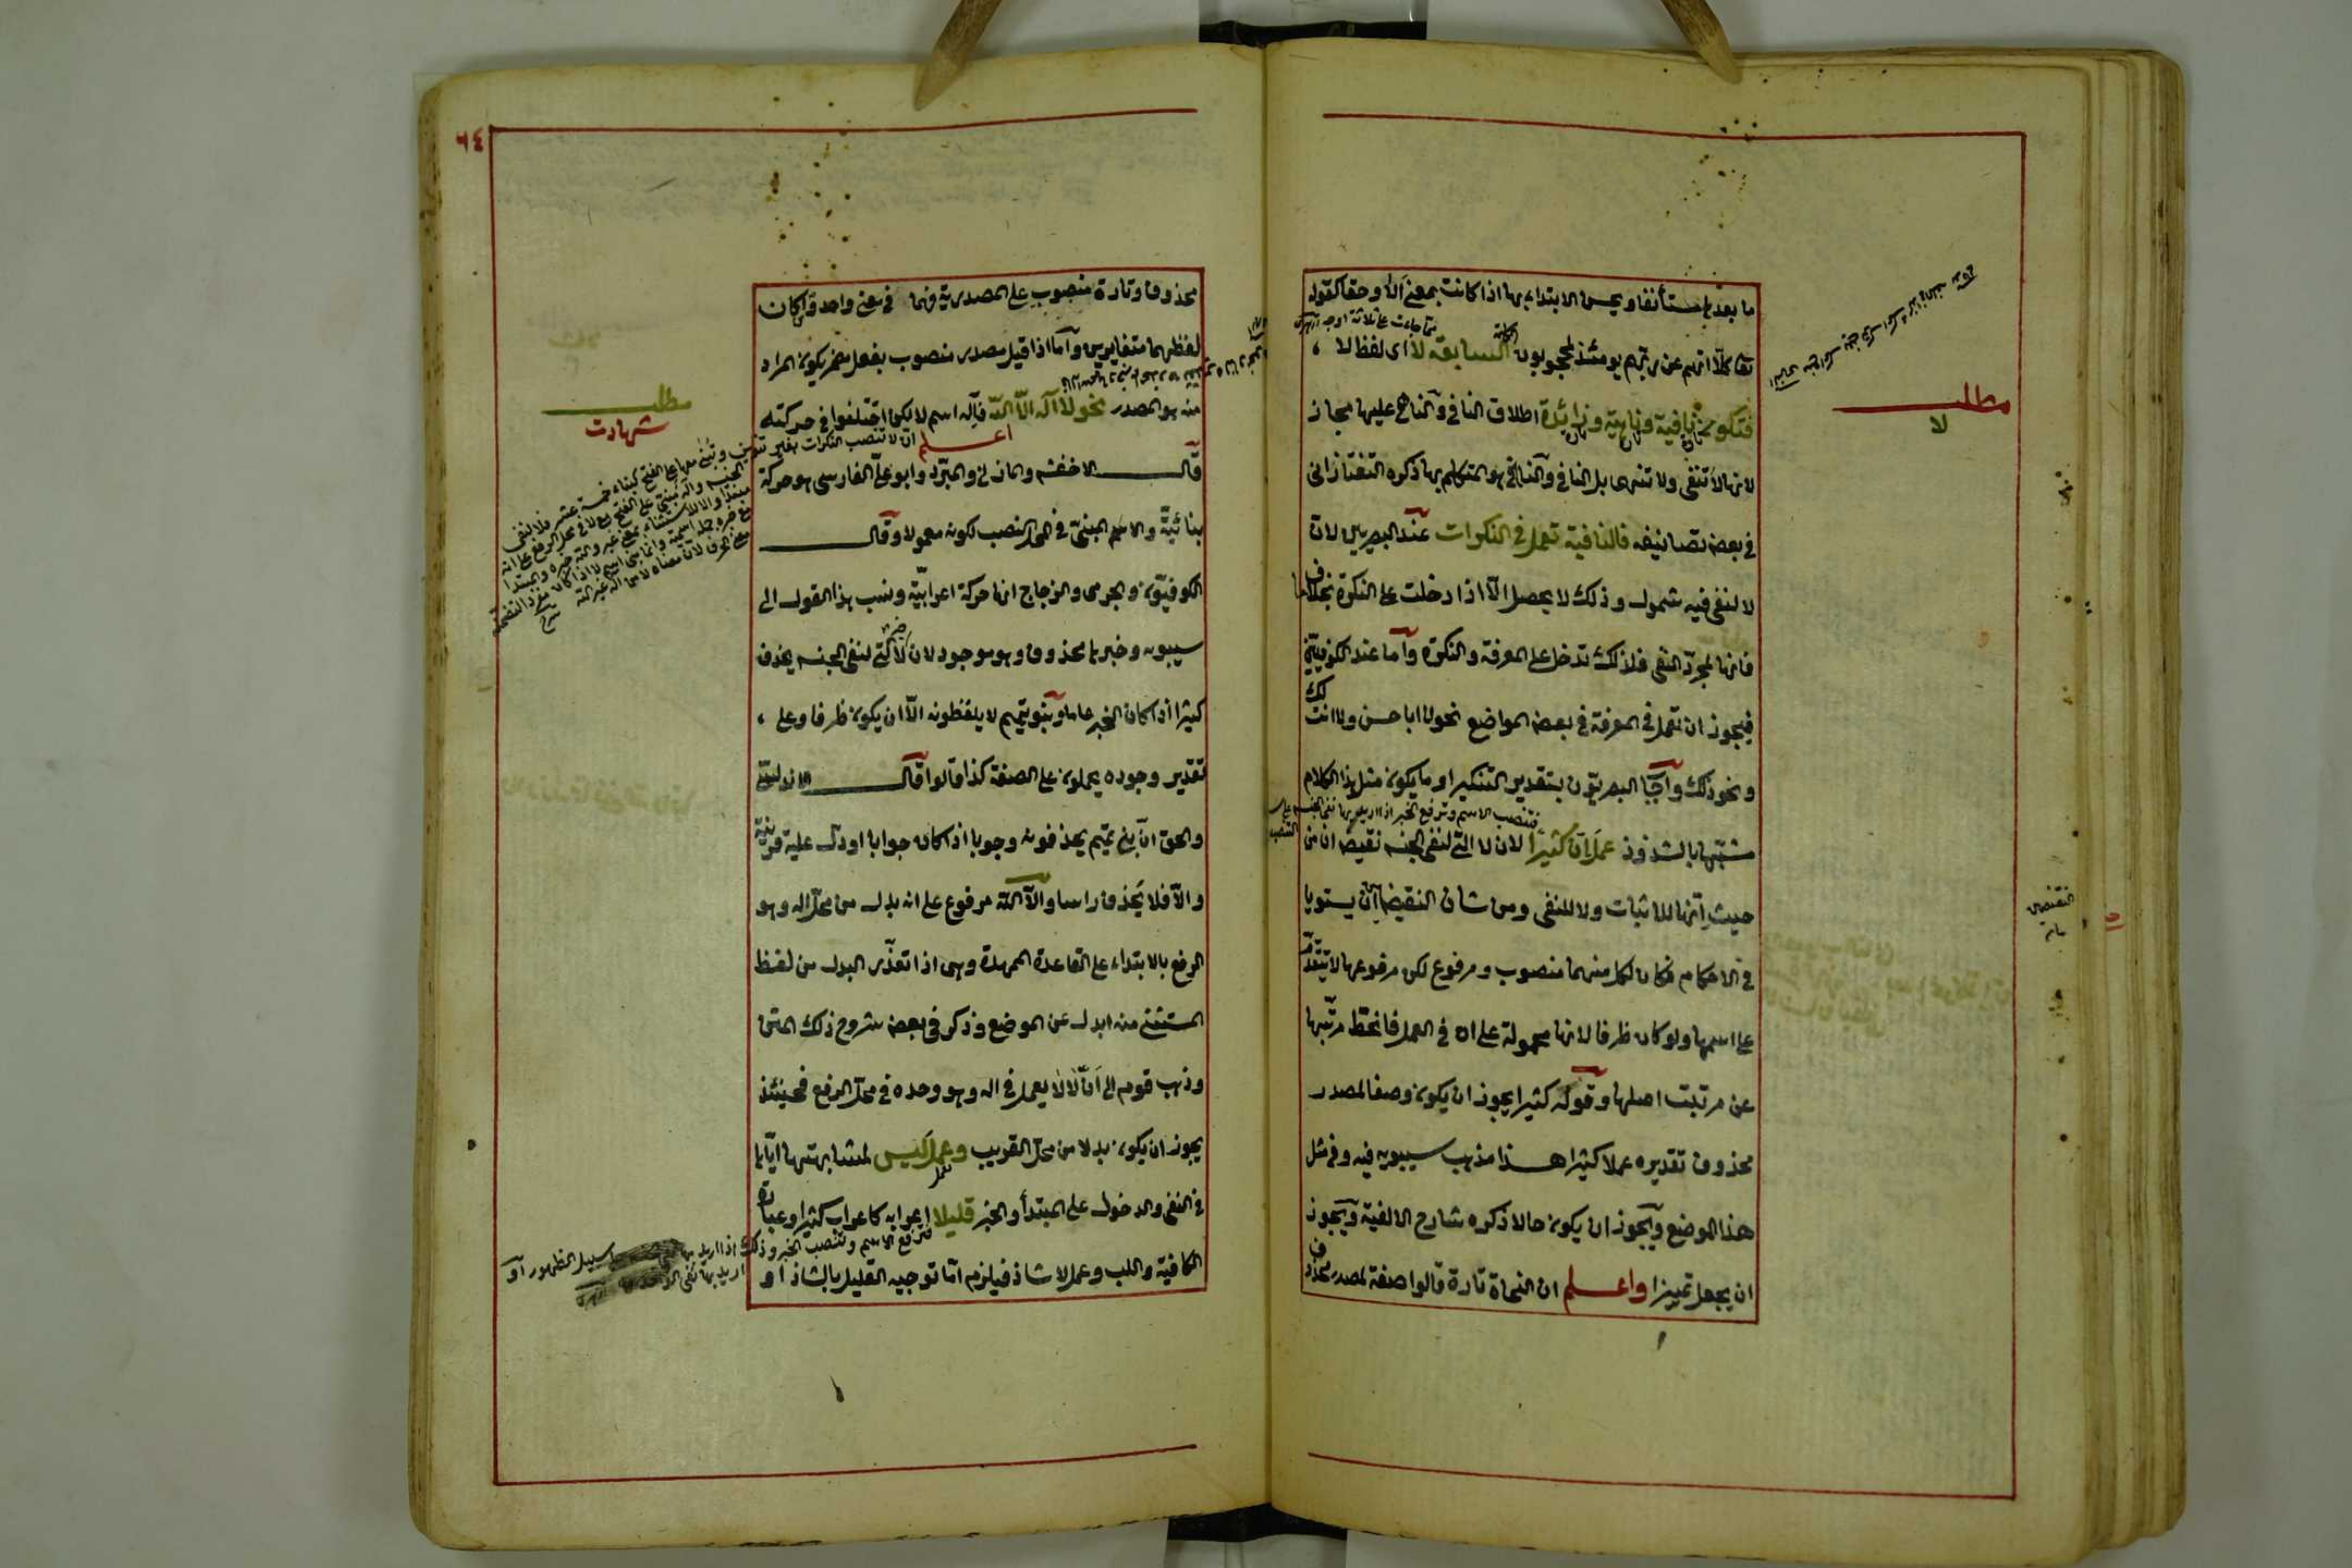 ما بعدها مستأنفا ويحسن الابتداء بها اذا كانت بمعنى ألا وحقا كقوله
تعا كلّا انهم عن ربهم يومئذ لمحجوبون السابقة لا اى لفظ لا
فتكون نافية وناهية وزائدة اطلاق النافى والناهى عليها مجاز
لانها لا تنفى ولا تنهى بل النافى والناهى هو المتكلم بها ذكره التفتازانى
فى بعض تصانيفه فالنافية تعمل فى النكرات عند البصريين لان
لا لنفى فيه شمول وذلك لا يحصل الّا اذا دخلت على النكرة بخلاف ما
فانها لمجرّد النفى فلذلك تدخل على المعرفة والنكرة وأما عند الكوفيين
فيجوز ان تعمل فى المعرفة فى بعض المواضع نحو لا ابا حسن ولا انت
ونحو ذلك وأجاب البصريون بتقدير التنكير او ما يكون مثل هذا الكلام
مشبّها بالشذوذ عمل انّ كثيرا لان لا التى لنفى الجنس نقيض ان من
حيث إنها للاثبات ولا للنفى ومن شان النقيضين أن يستويا
فى الاحكام فكان لكل منهما منصوب ومرفوع لكن مرفوعها لا يتقدّم
على اسمها ولو كان ظرفا لانها محمولة على ان فى العمل فانحطّ مرتبها
عن مرتبت اصلها وقوله كثيرا يجوز ان يكون وصفا لمصدر
محذوف تقديره عملا كثيرا هذا مذهب سيبويه فيه وفى مثل
هذا الموضع ويجوز ان يكون حالا ذكره شارح الالفية ويجوز
ان يجعل تميزا واعلم ان النحاة تارة قالوا صفة لمصدر محذوف
مطلب
لا
٦٤
محذوف وتارة منصوب على المصدرية فهما فى معنى واحد وان كان
لفظهما متغايرين وأما اذا قيل مصدر منصوب بفعل مضمر يكون المراد
منه هو المصدر نحو لا اله الّا الله فاله اسم لا لكن اختلفوا فى حركته
قال الاخفش والمازنى والمبرّد وابو علىّ الفارسى هو حركة
بنائيّة والاسم المبنىّ فى محل النصب لكونه معمولا وقال
الكوفيّون والجرمى والزجاج انها حركة اعرابيّة ونسب هذا القول الى
سيبويه وخبرها محذوف وهو موجود لان لا التى لنفى الجنس يحذف
كثيرا اذا كان الخبر عاما وبنو تميم لا يلفظونه الّا ان يكون ظرفا وعلى
تقدير وجوده يحملون على الصفة كذا قالوا قال الاندلسى
والحق انّ بنى تميم يحذفونه وجوبا اذا كان جوابا او دلّ عليه قرينة
والّا فلا يحذف راسا والّا الله مرفوع على انه بدل من محل اله وهو
الرفع بالابتداء على القاعدة الممهدة وهى اذا تعذّر البدل من لفظ
المستثنى منه ابدل عن الموضع وذكر فى بعض شروح ذلك المتن
وذهب قوم الى انّ لا لا يعمل فى اله وهو وحده فى محل الرفع فحينئذ
يجوز ان يكون بدلا من محل القريب وعمل ليس لمشابهتها ايّاها
فى النفى والدخول على المبتدأ والخبر قليلا اعرابه كاعراب كثيرا وعبارة
الكافية واللب وعمل لا شاذ فيلزم امّا توجيه القليل بالشاذ او
مطلب
شهادت
اعلم انّ لا تنصب النكرات بغير تنوين
فترفع الاسم وتنصب الخبر وذلك اذا اريد بها